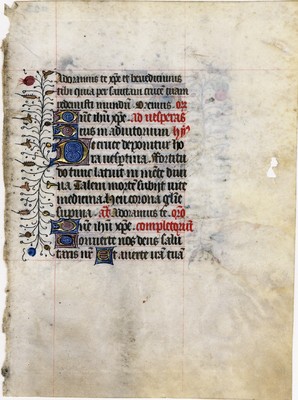 Adoramus te xpe et benedicimus
tibi quia per sanctam crucē tuam
redemisti mundū Oremus or
Dñe ihū xpe ad uesperas
Deus in adiutorium hỹ
De cruce deponitur ho
ra uesptina fortitu
do diuī latuit in mēte diui
na Talem mortē subijt uite
medicina Heu corona glīe
supina añ Adoramus te orō
Dñe ihū xpe completoriū
Conuerte nos deus salu
taris nr̄ Et auerte irā tuā